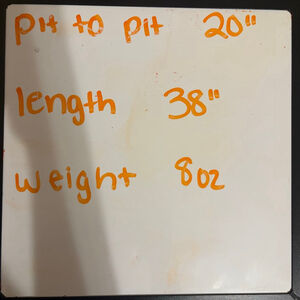 pit to pit 20"
length 38"
weight 8oz